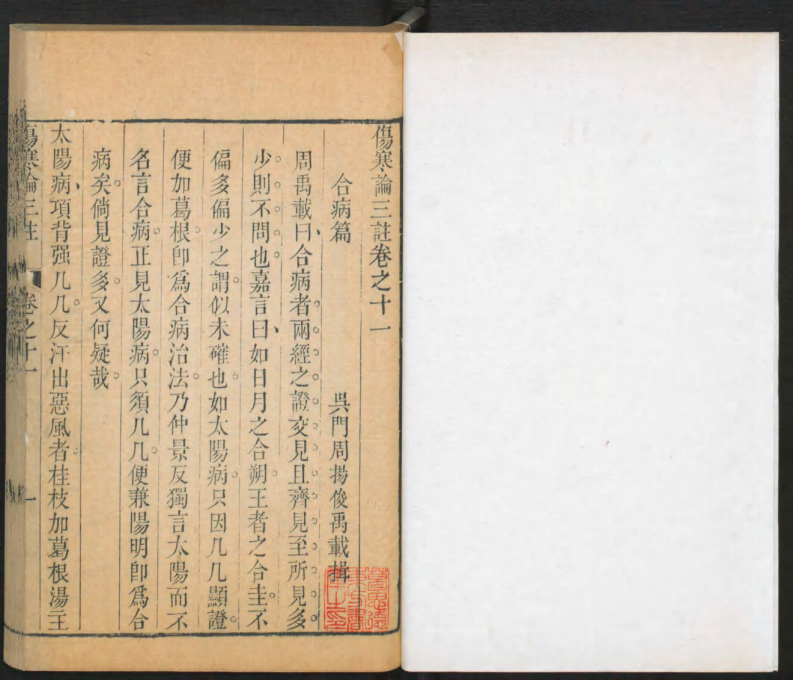 傷寒論三註卷之十一
合病篇
吳門周揚俊禹載揖
周禹載曰合病者兩經之證交見且齊見至所見多
少則不問也嘉言曰如日月之合朔王者之合圭不
偏多偏少之謂似未確也如太陽病只因几几顯證
便加葛根卽爲合病治法乃仲景反獨言太陽而不
名言合病正見太陽病只須几几便兼陽明卽爲合
病矣倘見證多又何疑哉
太陽病項背强几几反汗出惡風者桂枝加葛根湯主
傷寒論三註 卷之十一 一